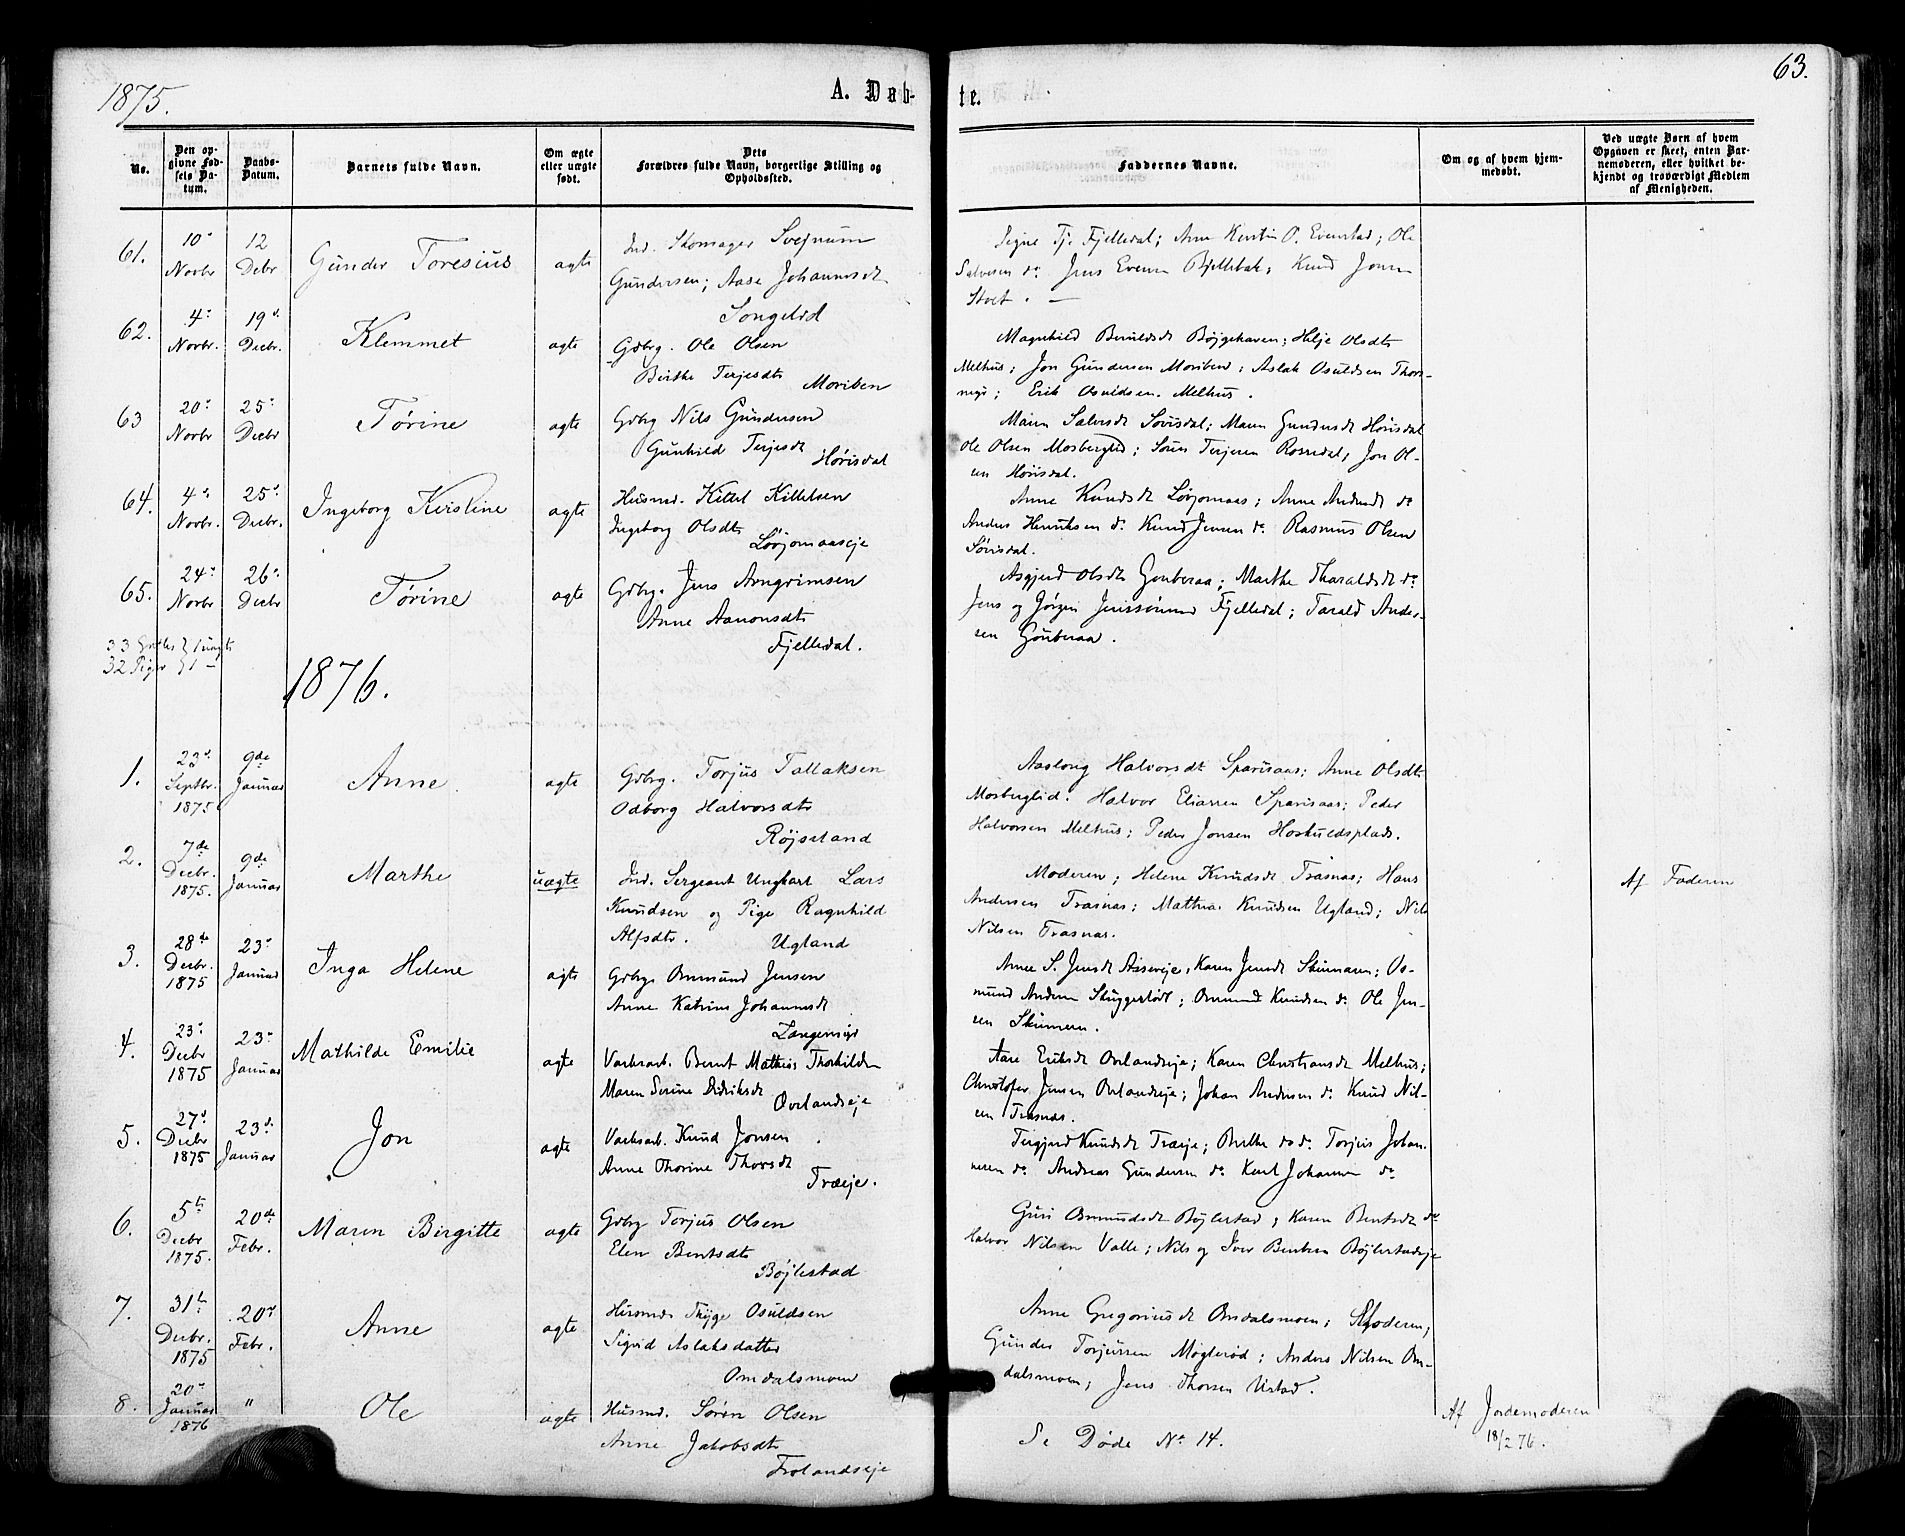 1875.
A. Døb-
te.
63.
No.
Den op-
givne Fød-
sels Da-
tum.
Daabs-
Datum.
Barnets fulde Navn.
Om ægte
eller uægte
født.
Dets
Forældres fulde Navn, borgerlige Stilling og
Opholdssted.
Faddernes Navne.
Om og af hvem hjem-
medøbt.
Ved uægte Børn af hvem
Opgaven er skeet, enten Bar-
nemoderen, eller hvilket be-
kjendt og troværdigt Medlem
af Menigheden.
61.
10de
Novbr
12
Debr
Gunder Toresius
ægte
Ind. Skomager Svejnum
Gundersen; Aase Johannesdt
Songelid
Signe Tj. Fjelledal; Ane Kirstin O. Evenstad; Ole
Salvesen do. Jens Evensen Bjellebek; Knud Jensen
62.
4de
Novbr.
19de
Decbr.
Klemmet
ægte
Gdbrg. Ole Olsen
Birthe Terjesdt
Moriben
Magnhild Böjgehaven; Helje Olsdt
Melhus; Jon Gundersen Moriben; Aslak Osuldsen Thors-
nigs; Erik Osuldsen Melhus.
63
20de
Novbr
25de
Decbr
Tørine
ægte
Gdbrg Nils Gundersen
Gunhild Terjesdt
Hørisdal
Maren Salvesdt Sövisdal; Maren Gundersdt Hörisdal
Ole Olsen Mosberglid; Sören Terjesen Rossedal; Jon Ol-
sen Hörisdal.
64.
4de
Novbr.
25de
Decbr.
Ingeborg Kirstine
ægte
Husmd. Kittel Kittelsen
Ingeborg Olsdt
Løvjomaaseje
Anne Knudsdt Løvjomaas; Anne Andersdt do
Anders Henriksen do. Knud Jensen do. Rasmus Olsen
Sövisdal.
65.
24de
Novbr
26de
Decbr
Tørine
ægte
Gdbrg. Jens Arngrimsen
Anne Aanonsdt
Fjelledal.
Asgjerd Olsdt Gouberaa; Marthe Tharaldsdt do
Jens og Jørgen Jenssønner Fjelledal; Tarald Ander-
sen Gouberaa.
33 Gutter 1 uægte
32 Piger 1 —
1876.
1.
23de
Septbr.
1875
9de
Januar
Anne
ægte
Gdbrg. Torjus Tallaksen
Odborg Halvorsdt
Røjseland
Aaslaug Halvorsdt Sparsaas; Anne Olsdt
Mosberglid. Halvor Eliassen Sparsaas; Peder
Halvorsen Melhus; Peder Jonsen Hoskuldsplads.
2.
7de
Decbr.
1875.
9de
Januar
Marthe
uægte
Ind. Sergeant Ungkarl Lars
Knudsen og Pige Ragnhild
Alfsdtr. Ugland
Moderen; Helene Knudsdt Trasnas; Hans
Andersen Trasnas; Mathias Knudsen Ugland; Nils
Nilsen Trasnas.
Af Faderen
3.
28de
Decbr.
1875
23de
Januar
Inga Helene
ægte
Gdbrg Ommund Jensen
Anne Katrine Johannesdt
Langemyr
Anne S. Jensdt Asseveje; Karen Jensdt Skimaren; Os-
mund Andersen Skyggestødt; Ommund Knudsen do. Ole Jen-
sen Skimeren.
4.
23de
Decbr
1875
23de
Januar
Mathilde Emilie
ægte
Værksarb. Bernt Mathias Thorkildsen
Maren Serine Didriksdt
Ovelandseje
Aase Eriksdt Ovelandseje; Karen Christiansdt Melhus;
Christofer Jensen Ovelandseje; Johan Andersen do. Knud Nil-
sen Trasnas.
5.
27de
Decbr
1875
23de
Januar
Jon
ægte
Værksarb. Knud Jonsen
Anne Thorine Thorsdt
Træeje.
Torgjerd Knudsdt Træeje; Birthe do do. Torjus Johan-
nesen do. Andreas Gundersen do. Karl Johansen do
6.
5te
Decbr
1875.
20de
Febr.
Maren Birgitte
ægte
Gdbrg Torjus Olsen
Elen Bentsdt
Bøjlestad
Guri Osmundsdt Bøjlestad; Karen Bentsdt do
Halvor Nilsen Valle; Nils og Iver Bentsen Bøjlestadeje
7.
31te
Decbr.
1875
20de
Febr.
Anne
ægte
Husmd. Thyge Osuldsen
Sigrid Aslaksdatter
Omdalsmoen
Anne Gregoriusdt Omdalsmoen; Moderen;
Gunder Torjussen Møglerød; Anders Nilsen Om-
dalsmoen; Jens Thorsen Ustad.
8.
20de
Januar
1876
"
Ole
ægte
Husmd. Søren Olsen
Anne Jakobsdt
Frolandseje
Se Døde No 14.
Af Jordemoderen
18/2 76.